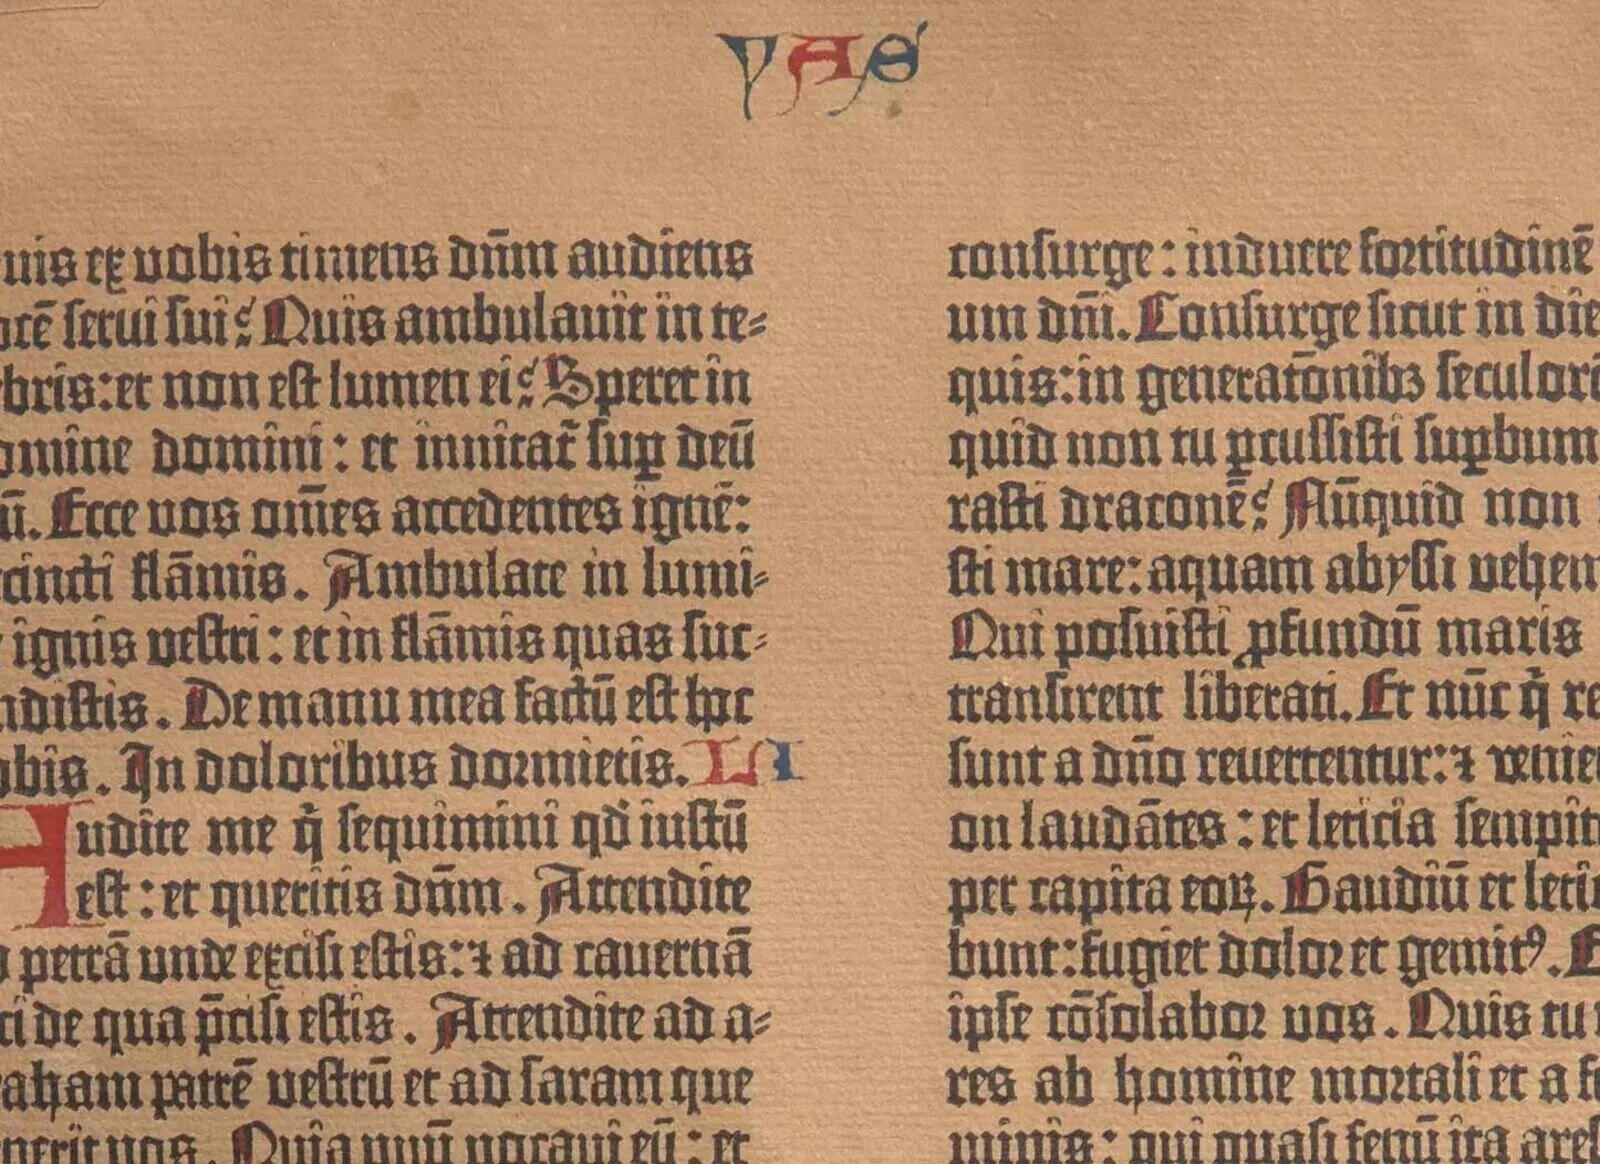 YAS
uis ex vobis timens dñm audiens
otē serui sui? Quis ambulauit in te=
bris: et non est lumen ei? Speret in
omine domini: et innitat̃ sup̱ deū
ū. Ecce vos om̄es accedentes ignē:
cincti flāmis. Ambulate in lumi=
ignis vestri: et in flāmis quas suc=
ndistis. De manu mea factū est hoc
obis. In doloribus dormietis. LI
Audite me q̄ sequimini qd̄ iustū
est: et queritis dñm. Attendite
petrā unde excisi estis: ⁊ ad cauernā
ci de qua p̄cisi estis. Attendite ad a=
aham patrē vestrū et ad saram que
Quia unū vocaui eū: et
consurge: induere fortitudinē
um dñi. Consurge sicut in die
quis: in generatōnibꝫ seculorū
quid non tu ꝑcussisti suꝑbum
rasti draconē? Nūquid non
sti mare: aquam abyssi vehem
Qui posuisti ꝓfundū maris
transirent liberati. Et nūc q̄ re
sunt a dño reuertentur: ⁊ venie
on laudātes: et leticia sempit
per capita eoꝝ. Gaudiū et leti
bunt: fugiet dolor et gemitꝰ. E
ipse cōsolabor vos. Quis tu
res ab homine mortali et a f
minis: qui quasi fenū ita ares